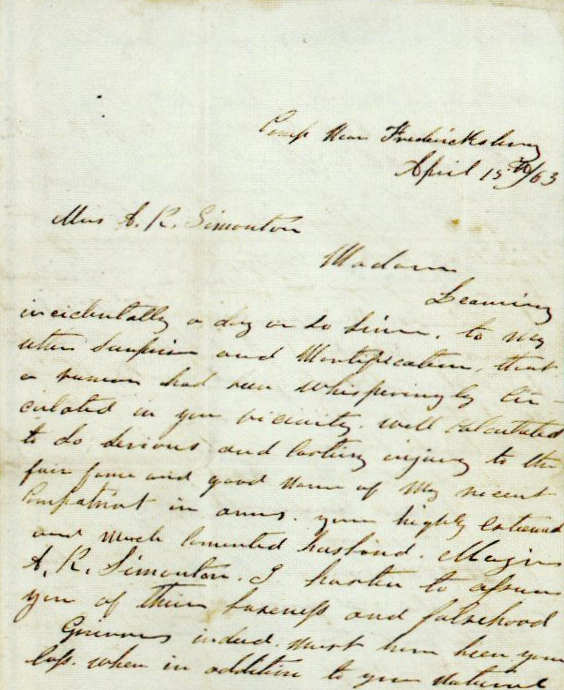 Camp Near Fredericksburg
April 15th/63
Mrs A. R. Simonton
Madam
Learning
incidentally a day or so since, to my
utter surprise and Mortification, that
a rumor had been whisperingly cir-
culated in your vicinity. well calculated
to do serious and lasting injury to the
fair fame and good name of My recent
Compatriot in arms. your highly esteemed
and much lamented husband. Major
A. R. Simonton. I hasten to assure
you of their baseness and falsehood
Grievous indeed. must have been your
loss. when in addition to your natural